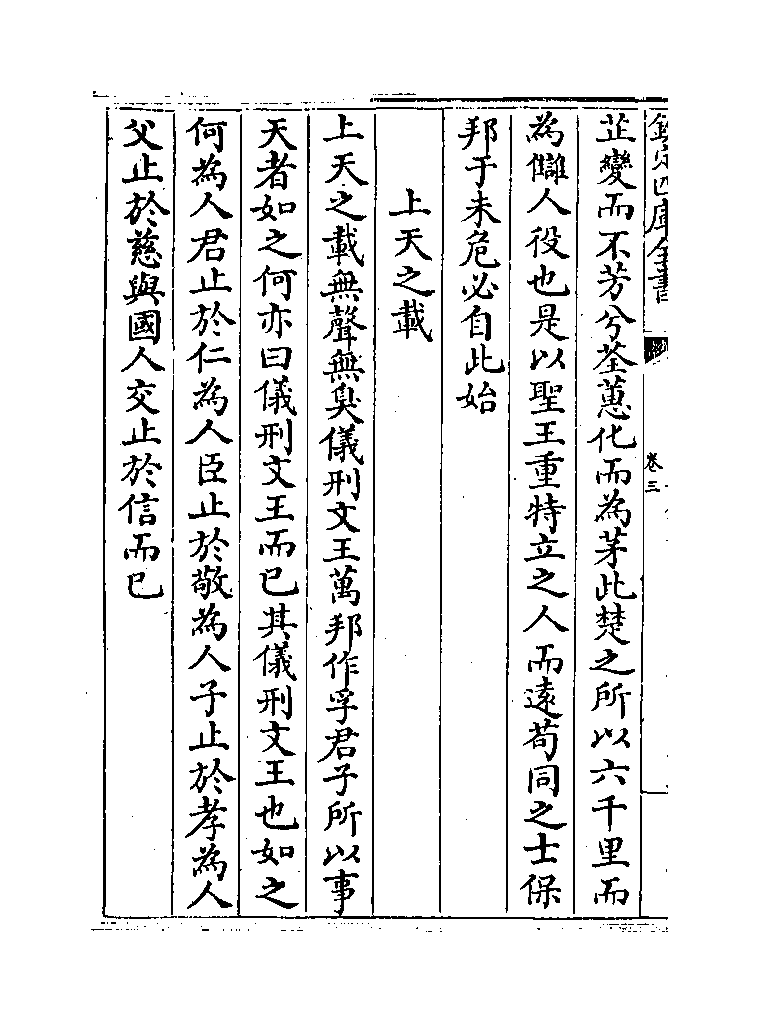 欽定四庫全書
卷三
芷變而不芳兮荃蕙化而為茅此楚之所以六千里而
為讎人役也是以聖王重特立之人而遠苟同之士保
邦于未危必自此始
上天之載
上天之載無聲無臭儀刑文王萬邦作孚君子所以事
天者如之何亦曰儀刑文王而已其儀刑文王也如之
何為人君止於仁為人臣止於敬為人子止於孝為人
父止於慈與國人交止於信而已